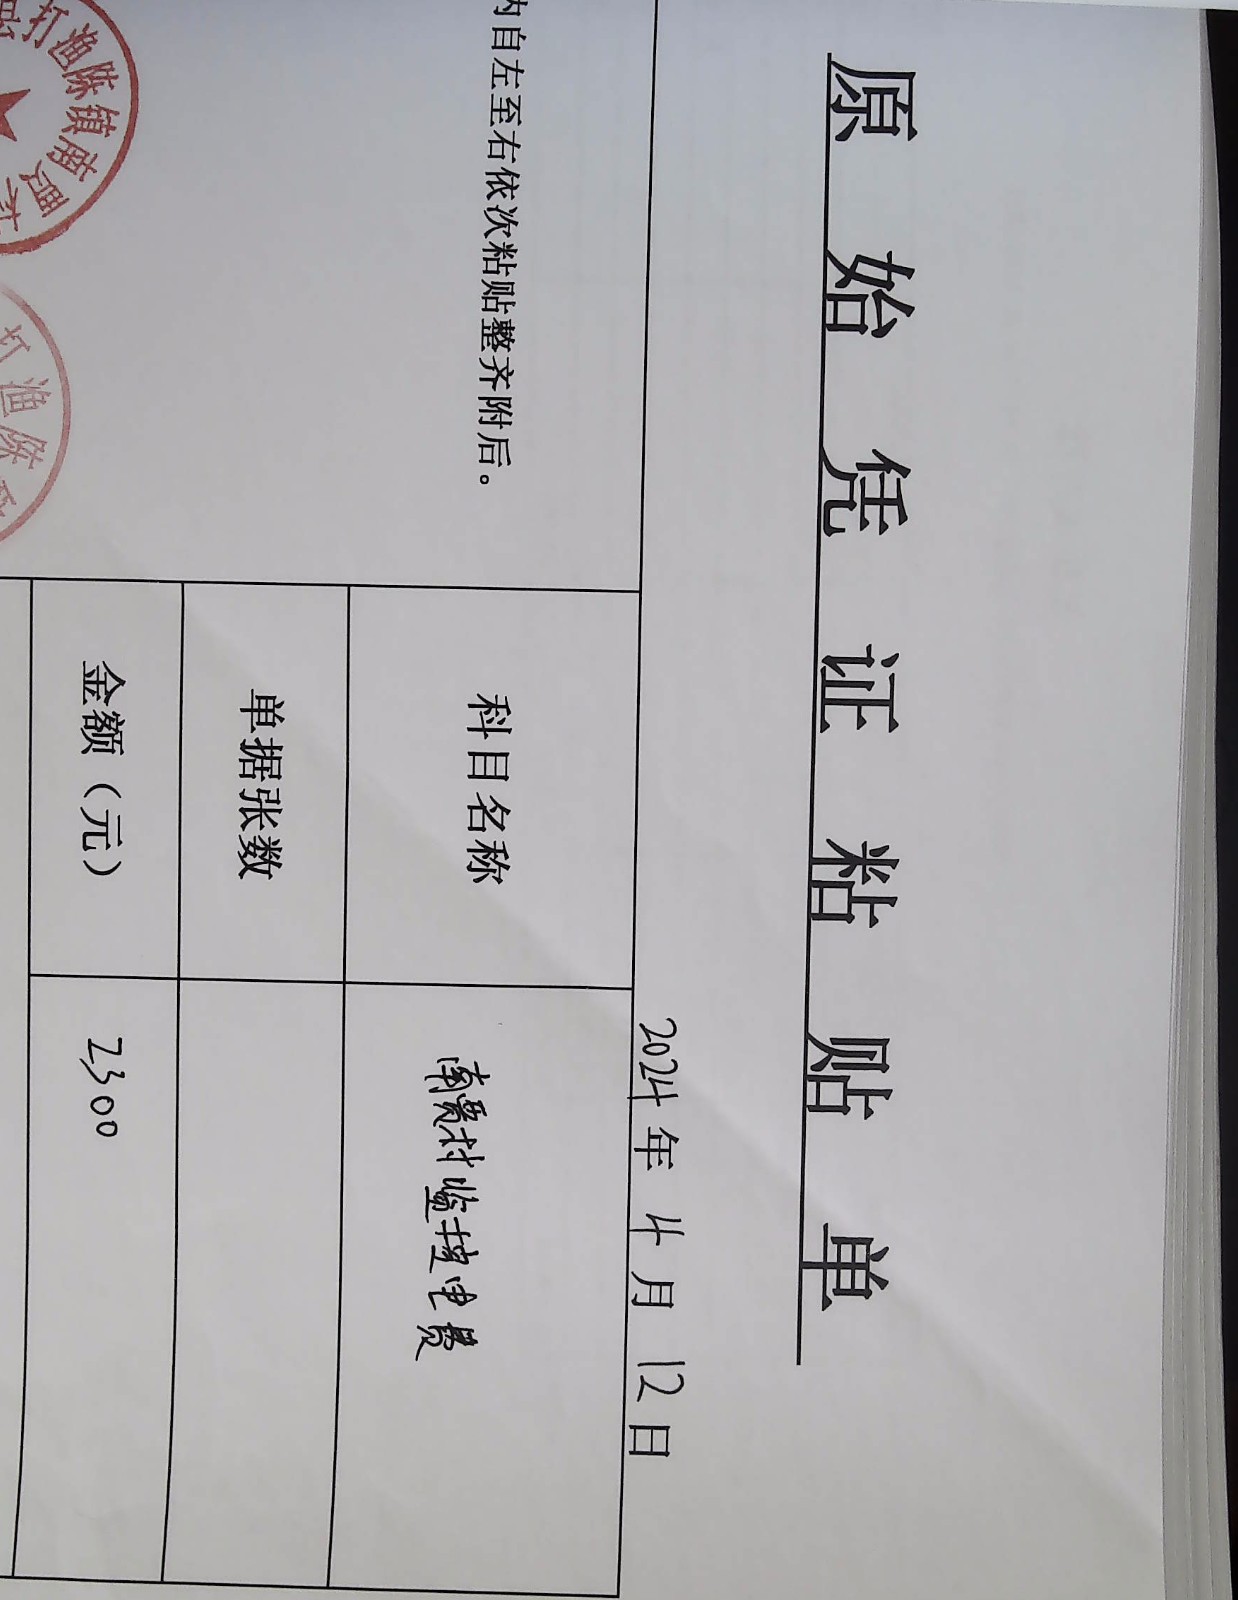 原始凭证粘贴单
2024年4月12日
内自左至右依次粘贴整齐附后。
科目名称 南贾村监控电费
单据张数
金额（元） 2300
打渔陈镇南贾村
打渔陈